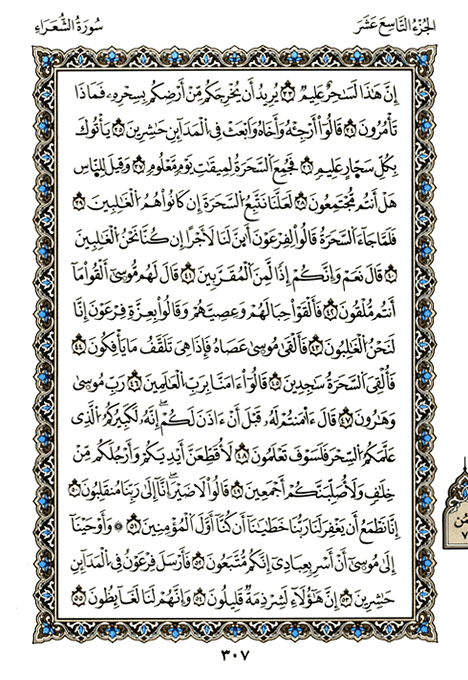 الجُزْءُ التَّاسِعَ عَشَرَ
سُورَةُ الشُّعَرَاءِ
إِنَّ هَٰذَا لَسَاحِرٌ عَلِيمٌ ٣٣ يُرِيدُ أَن يُخْرِجَكُم مِّنْ أَرْضِكُم بِسِحْرِهِۦ فَمَاذَا
تَأْمُرُونَ ٣٤ قَالُوٓا۟ أَرْجِئْهُ وَأَخَاهُ وَابْعَثْ فِي الْمَدَآئِنِ حَاشِرِينَ ٣٥ يَأْتُوكَ
بِكُلِّ سَحَّارٍ عَلِيمٍ ٣٦ فَجُمِعَ السَّحَرَةُ لِمِيقَاتِ يَوْمٍ مَّعْلُومٍ ٣٧ وَقِيلَ لِلنَّاسِ
هَلْ أَنتُم مُّجْتَمِعُونَ ٣٨ لَعَلَّنَا نَتَّبِعُ السَّحَرَةَ إِن كَانُوا۟ هُمُ الْغَالِبِينَ ٣٩
فَلَمَّا جَآءَ السَّحَرَةُ قَالُوا۟ لِفِرْعَوْنَ أَئِنَّ لَنَا لَأَجْرًا إِن كُنَّا نَحْنُ الْغَالِبِينَ
٤٠ قَالَ نَعَمْ وَإِنَّكُمْ إِذًا لَّمِنَ الْمُقَرَّبِينَ ٤١ قَالَ لَهُم مُّوسَىٰٓ أَلْقُوا۟ مَآ
أَنتُم مُّلْقُونَ ٤٢ فَأَلْقَوْا۟ حِبَالَهُمْ وَعِصِيَّهُمْ وَقَالُوا۟ بِعِزَّةِ فِرْعَوْنَ إِنَّا
لَنَحْنُ الْغَالِبُونَ ٤٣ فَأَلْقَىٰ مُوسَىٰ عَصَاهُ فَإِذَا هِيَ تَلَقَّفُ مَا يَأْفِكُونَ ٤٤
فَأُلْقِيَ السَّحَرَةُ سَاجِدِينَ ٤٥ قَالُوٓا۟ ءَامَنَّا بِرَبِّ الْعَالَمِينَ ٤٦ رَبِّ مُوسَىٰ
وَهَارُونَ ٤٧ قَالَ ءَاٰمَنتُمْ لَهُۥ قَبْلَ أَنْ ءَاذَنَ لَكُمْ ۖ إِنَّهُۥ لَكَبِيرُكُمُ الَّذِي
عَلَّمَكُمُ السِّحْرَ فَلَسَوْفَ تَعْلَمُونَ ٤٨ لَأُقَطِّعَنَّ أَيْدِيَكُمْ وَأَرْجُلَكُم مِّنْ
خِلَافٍ وَلَأُصَلِّبَنَّكُمْ أَجْمَعِينَ ٤٩ قَالُوا۟ لَا ضَيْرَ ۖ إِنَّآ إِلَىٰ رَبِّنَا مُنقَلِبُونَ ٥٠
إِنَّا نَطْمَعُ أَن يَغْفِرَ لَنَا رَبُّنَا خَطَايَانَآ أَن كُنَّآ أَوَّلَ الْمُؤْمِنِينَ ٥١ ۞ وَأَوْحَيْنَآ
إِلَىٰ مُوسَىٰٓ أَنْ أَسْرِ بِعِبَادِيٓ إِنَّكُم مُّتَّبَعُونَ ٥٢ فَأَرْسَلَ فِرْعَوْنُ فِي الْمَدَآئِنِ
حَاشِرِينَ ٥٣ إِنَّ هَٰٓؤُلَآءِ لَشِرْذِمَةٌ قَلِيلُونَ ٥٤ وَإِنَّهُمْ لَنَا لَغَآئِظُونَ ٥٥
٣٠٧